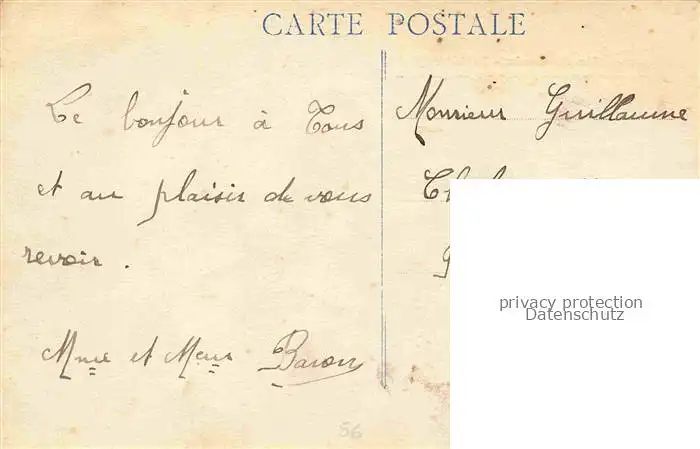 CARTE POSTALE
Le bonjour à Tous
et au plaisir de vous
revoir.
Mme et Meur Baron
Monsieur Guillaume
privacy protection
Datenschutz
86